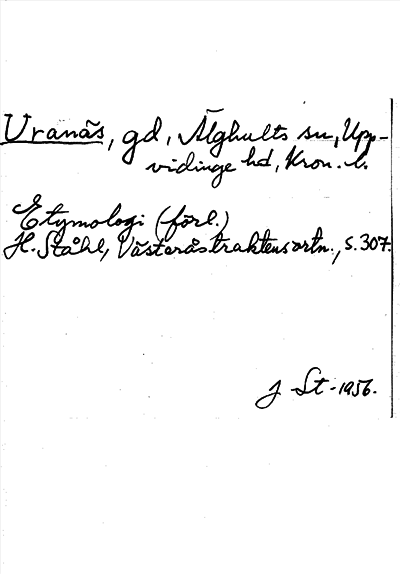 Uranäs, gd, Älghults sn, Upp-
vidinge hd, Kron. l.
Etymologi (förl.)
H. Ståhl, Västeråstraktens ortn., s. 307.
J St - 1956.